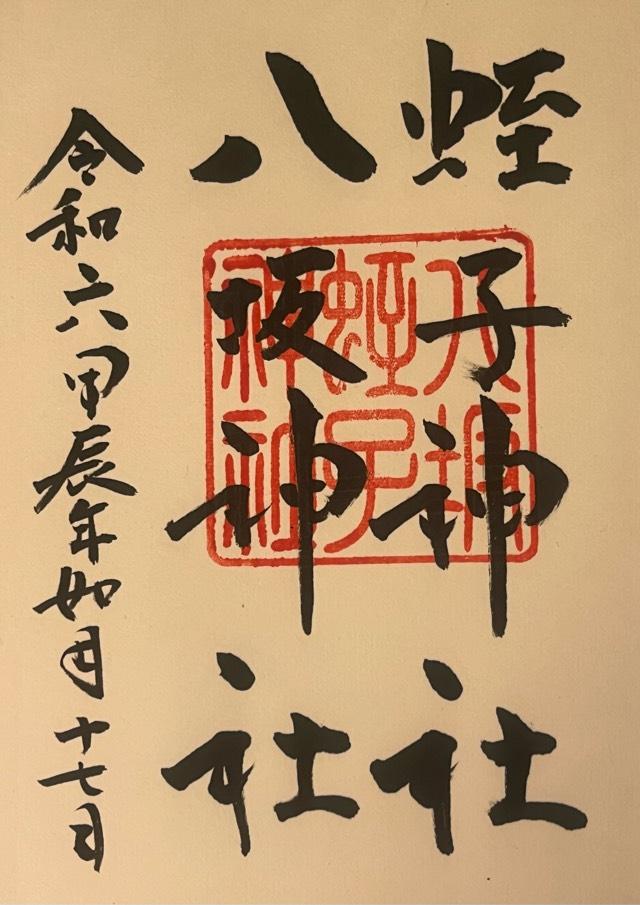 蛭子神社
八坂神社
令和六甲辰年如月十七日
八坂
蛭子
神社